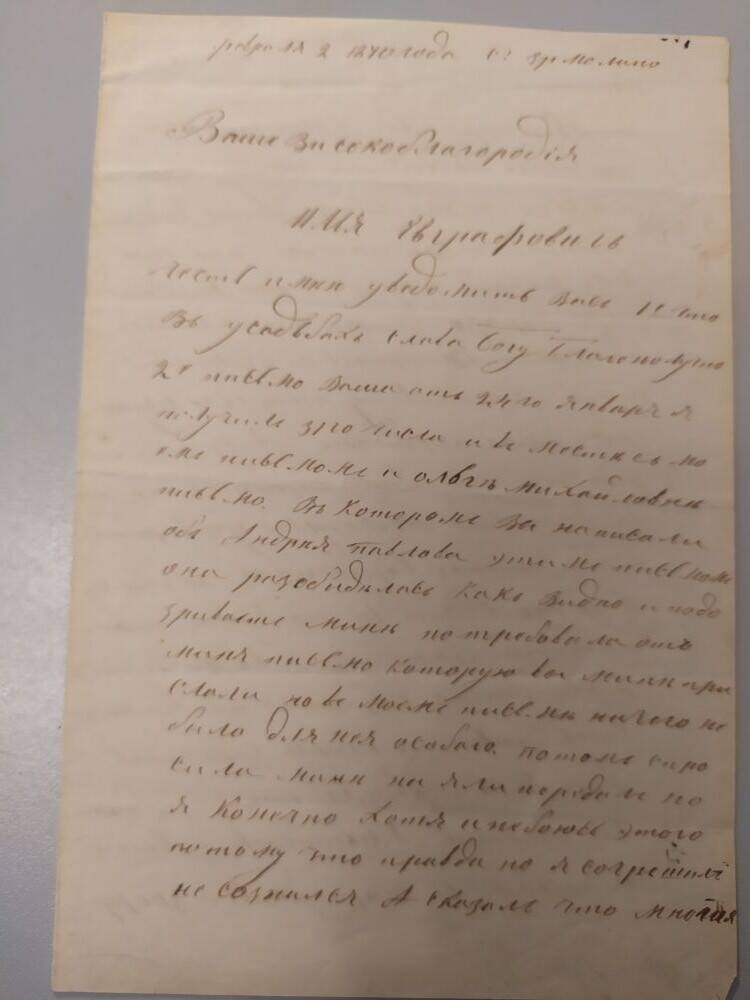 февраля 2 1870 года С: Ермолино
Ваше Высокоблагородія
Илія Евграфовичь
Честь имею уведомить Васъ 1е что
Въ усадьбахъ слава Богу благополучно
2е письмо Ваша отъ 24го января я
получилъ 3го числа и въ месте съ мо
имъ письмомъ и ольге михайловне
письмо. Въ которомъ Вы написали
объ Андрея Павлова этимъ письмомъ
она разобиделась какъ видно и подо
зреваетъ мине потребовала отъ
мине письмо которую вы мине при
слали но въ моемъ письме ничего не
было для нея особаго. потомъ спро
сила мине не я ли передалъ но
я Конечно хотя и небоюсь этого
потому что правда но я согрешилъ
не сознался А сказалъ что многия